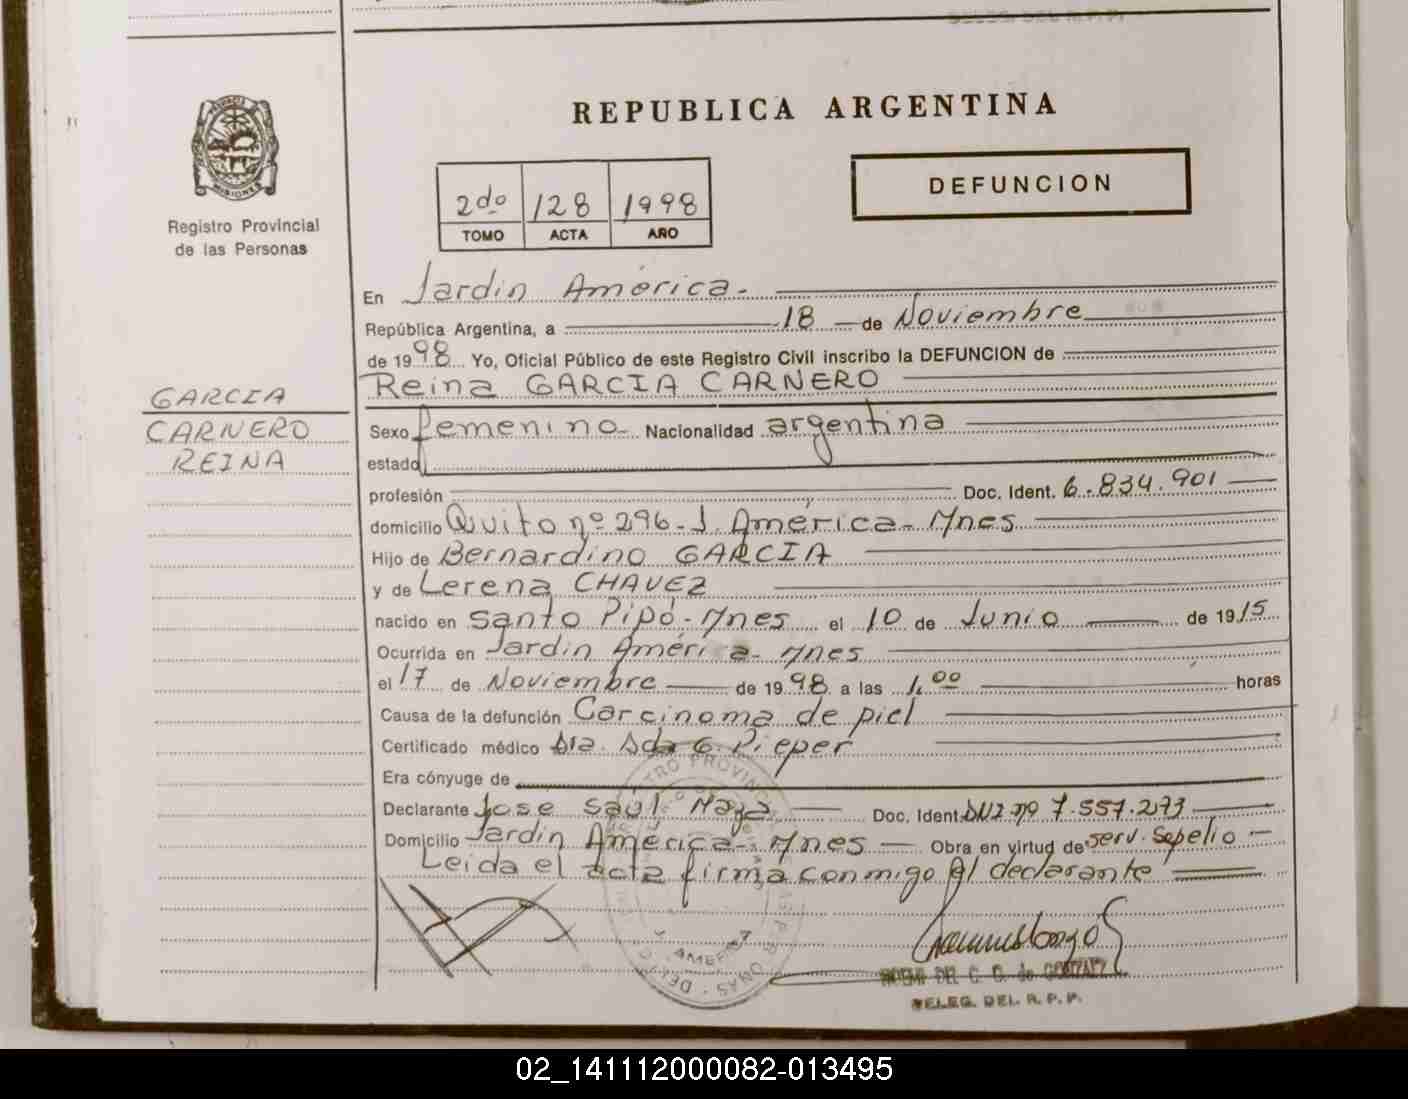 REPUBLICA ARGENTINA
PROVINCIA DE
MISIONES
Registro Provincial
de las Personas
2do 128 1998
TOMO ACTA AÑO
DEFUNCION
En Jardín América.
República Argentina, a 18 de Noviembre
de 1998 Yo, Oficial Público de este Registro Civil inscribo la DEFUNCION de
Reina GARCIA CARNERO
GARCIA
CARNERO
REINA
Sexo femenino Nacionalidad argentina
estado
profesión Doc. Ident. 6.834.901
domicilio Quito nº 296-J. América-Mnes
Hijo de Bernardino GARCIA
y de Lerena CHAVEZ
nacido en Santo Pipó-Mnes el 10 de Junio de 1915
Ocurrida en Jardín América-Mnes
el 17 de Noviembre de 1998 a las 1,00 horas
Causa de la defunción Carcinoma de piel
Certificado médico Dra. G. Pieper
Era cónyuge de
Declarante Jose Saul Doc. Ident. DNI nº 7.557.273
Domicilio Jardín América-Mnes Obra en virtud de Serv. Sepelio
Leída el acta firma conmigo el declarante
DEL C. G. de
DELEG. DEL R. P. P.
02_141112000082-013495